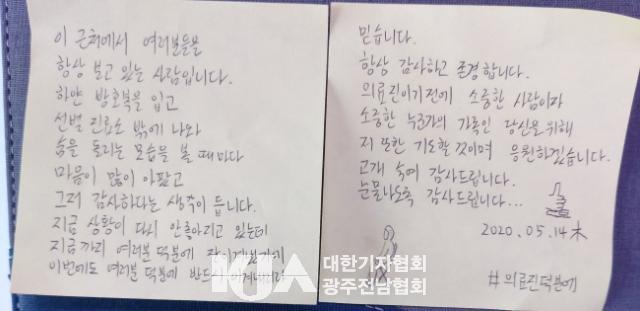 이 근처에서 여러분들을
항상 보고 있는 사람입니다.
하얀 방호복을 입고
선별 진료소 밖에 나와
숨을 돌리는 모습을 볼 때마다
마음이 많이 아팠고
그저 감사하다는 생각이 듭니다.
지금 상황이 다시 안좋아지고 있는데
지금까지 여러분 덕분에
이번에도 여러분 덕분에 반드시
믿습니다.
항상 감사하고 존경합니다.
의료진이기전에 소중한 사람이자
소중한 누군가의 가족인 당신을 위해
저 또한 기도할것이며 응원하겠습니다.
고개 숙여 감사드립니다.
눈물나도록 감사드립니다...
2020.05.14木
#의료진덕분에
대한기자협회
광주전남협회